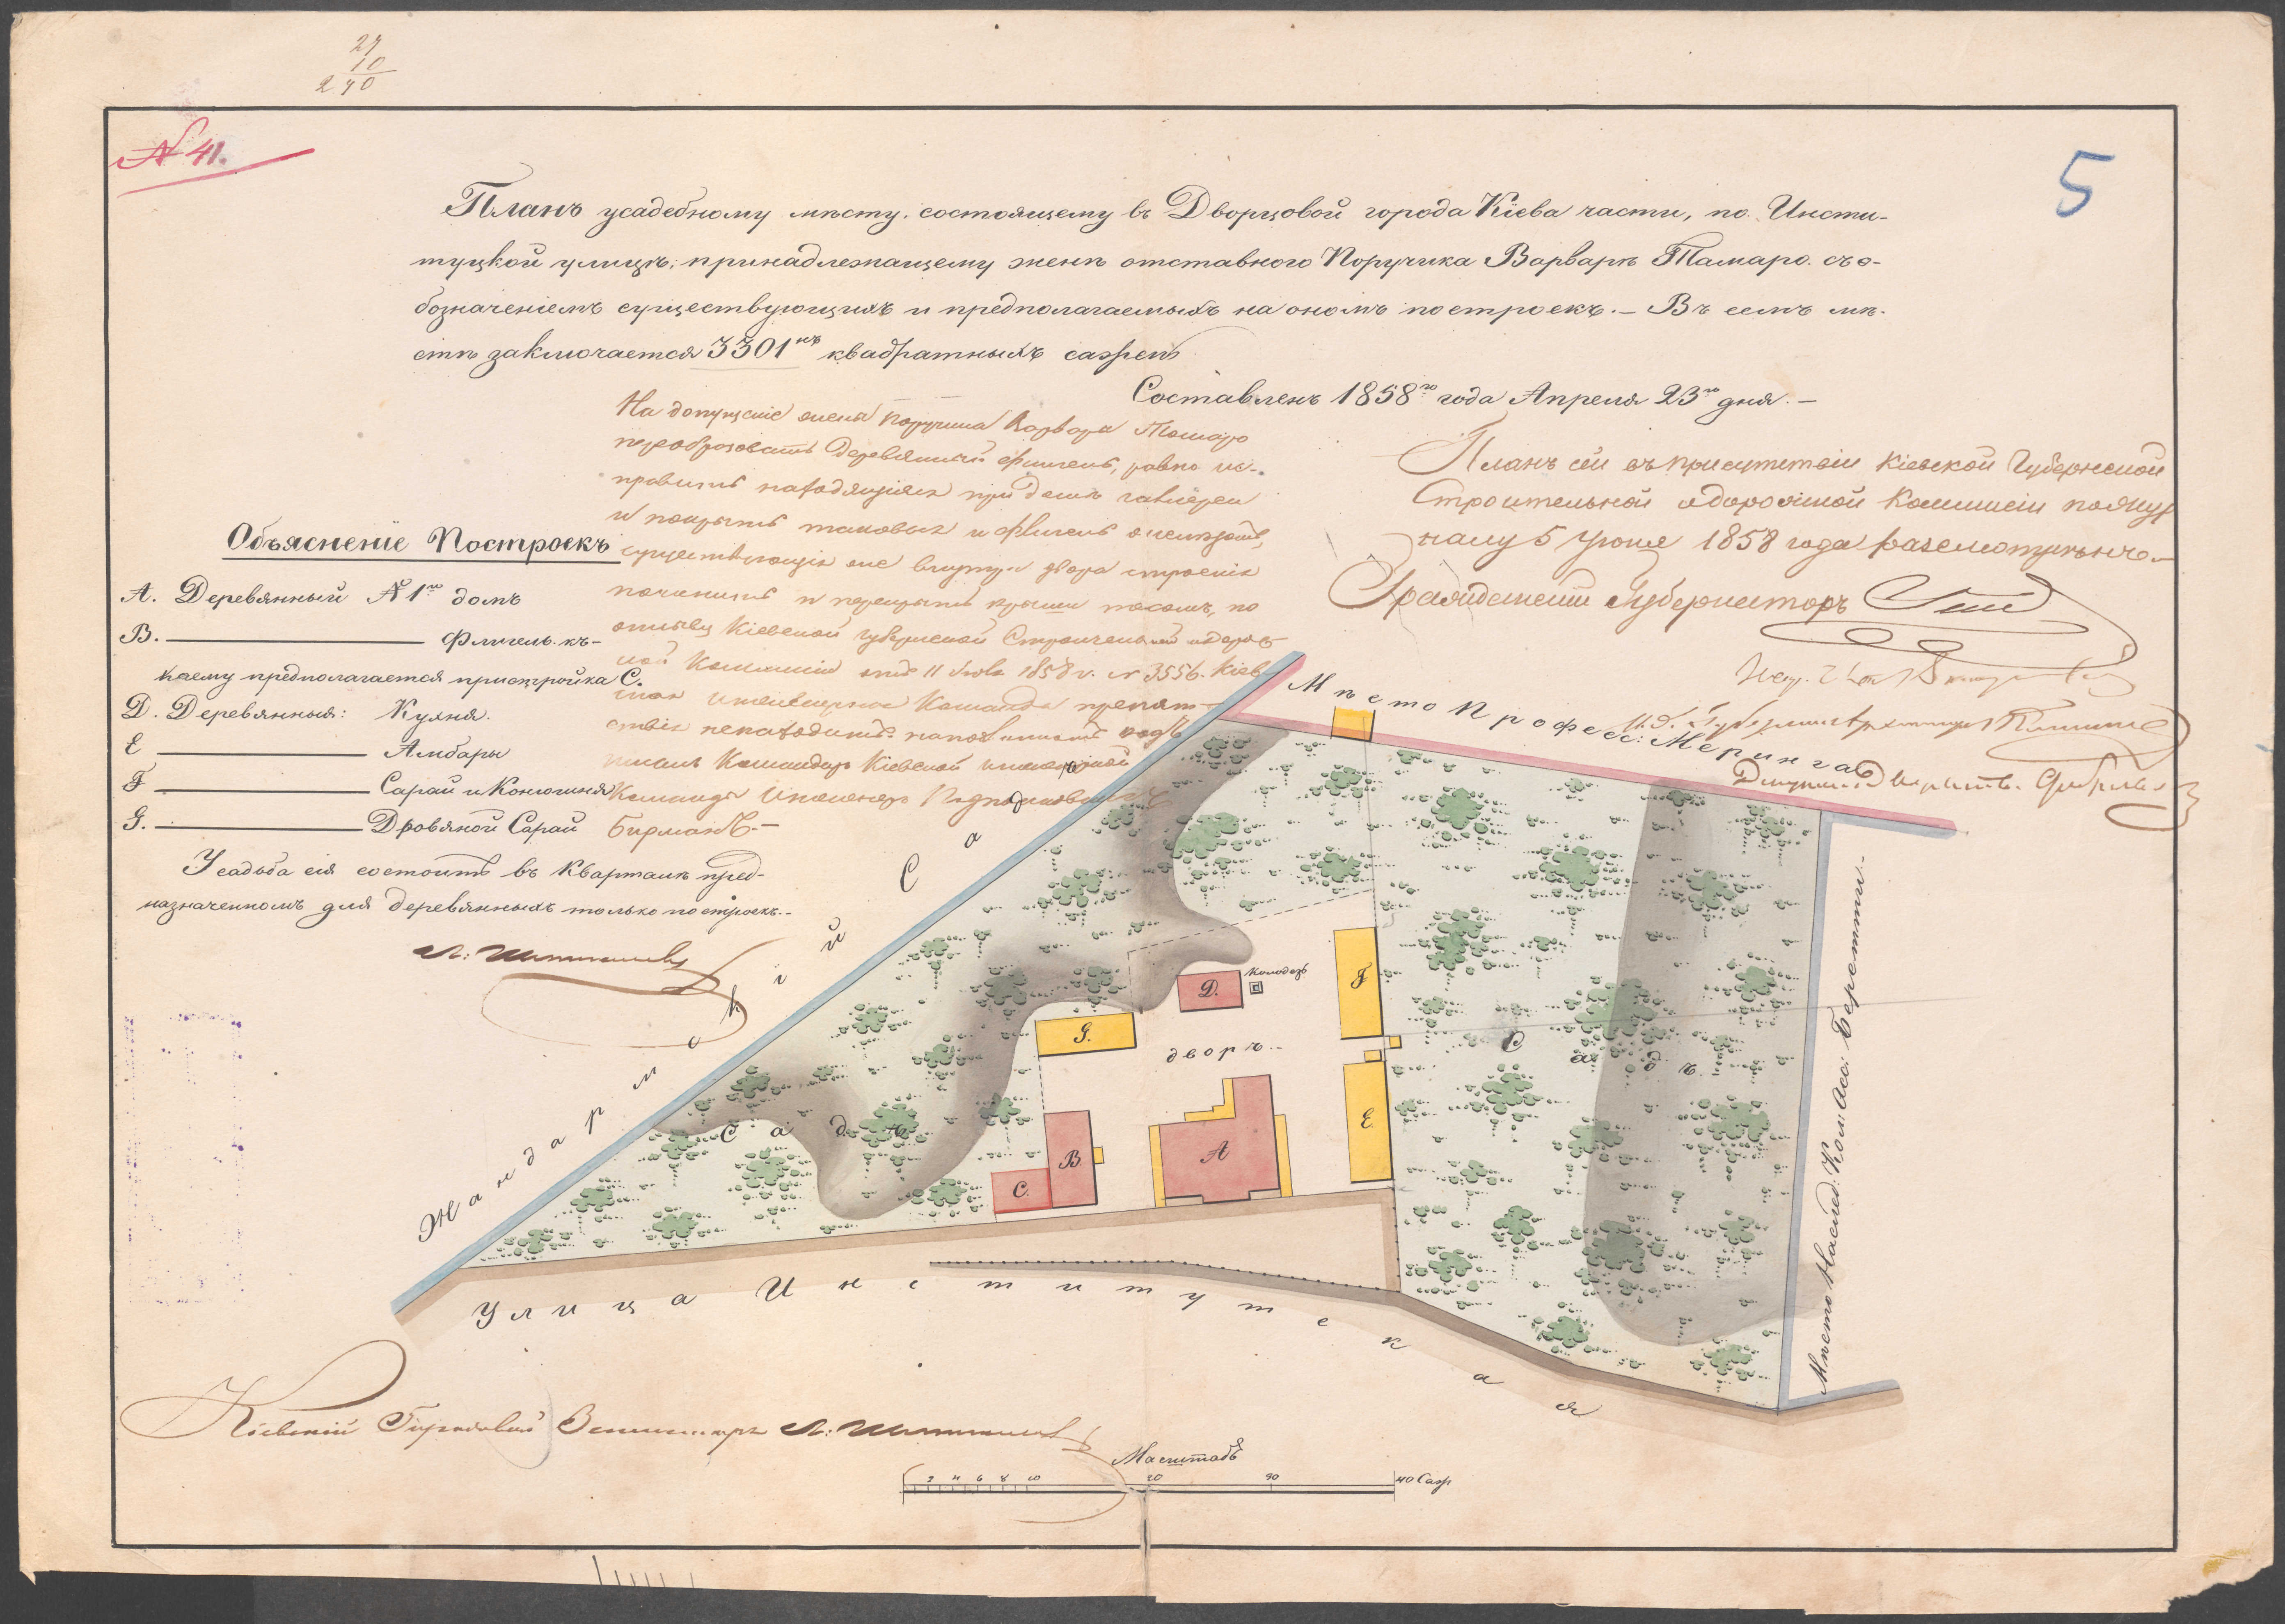 27
10
270
№ 41.
5
Планъ усадебному мѣсту, состоящему въ Дворцовой города Кіева части, по Инсти-
туцкой улицѣ, принадлежащему женѣ отставного Поручика Варварѣ Тамаро. съ о-
бозначеніемъ существующихъ и предполагаемыхъ на ономъ построекъ.– Въ семъ мѣ-
стѣ заключается 3301 квадратныхъ сажень
Составленъ 1858го года Апреля 23го дня.–
На допущеніе жены Поручика Варвары Томаро
преобразовать деревянный флигель, равно ис-
править находящіяся при домѣ галлереи
и покрыть таковыя и флигель
существующія же внутри двора строенія
починить и перекрыть крыши тесомъ, по
отзыву Кіевской Губернской Строительной и дорож-
ной Коммисіи отъ 11 Іюля 1858 г. № 3556. Кіев-
ская инженерная Команда препят-
ствія ненаходитъ.
Командиръ Кіевской инженерной
Команды Инженеръ Подполковникъ
Бирманъ.–
Планъ сей въ присутствіи Кіевской Губернской
Строительной и дорожной Коммисіи по журналу
5 Іюня 1858 года разсмотрѣнъ.
Гражданскій Губернаторъ
Объясненіе Построекъ
А. Деревянный № 1й домъ
В. Флигель къ-
коему предполагается пристройка С.
Д. Деревянныя: Кухня.
Е Амбары
F Сарай и Конюшня
G. Дровяной Сарай
Усадьба сія состоитъ въ Кварталѣ пред-
назначенномъ для деревянныхъ только построекъ.-
Мѣсто Професс: Меринга
Жандармскій Садъ
Колодезь
D.
F
G.
дворъ.–
Садъ
Садъ
B
A
E
C.
Мѣсто Наслед: Кол: Асс: Беретти.
Улица Институтская
Кіевскій Городовой Землемѣръ
Масштабъ
2 4 6 8 10 20 30 40 Саж